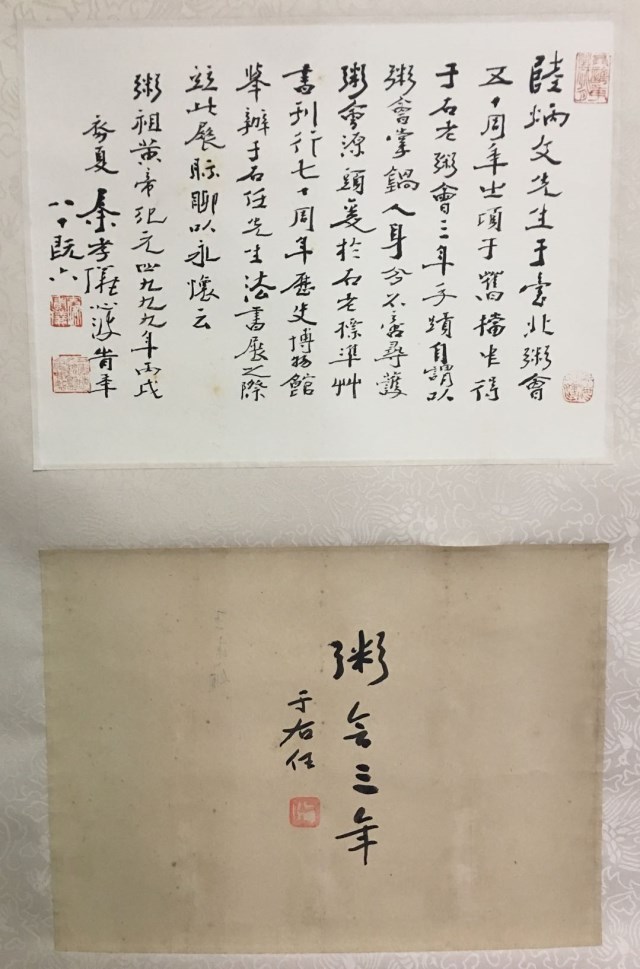 陸炳文先生于臺北粥會
五十周年出頃于舊檔中得
于右老粥會三年手蹟自謂以
粥會掌鍋人身分不啻尋獲
粥會源頭爰於右老標準艸
書刊行七十周年歷史博物館
舉辦于右任先生法書展之際
竝此展眎聊以永懷云
粥祖黃帝紀元四九九九年丙戌
秦孝儀心波
八十既六
粥會三年
于右任